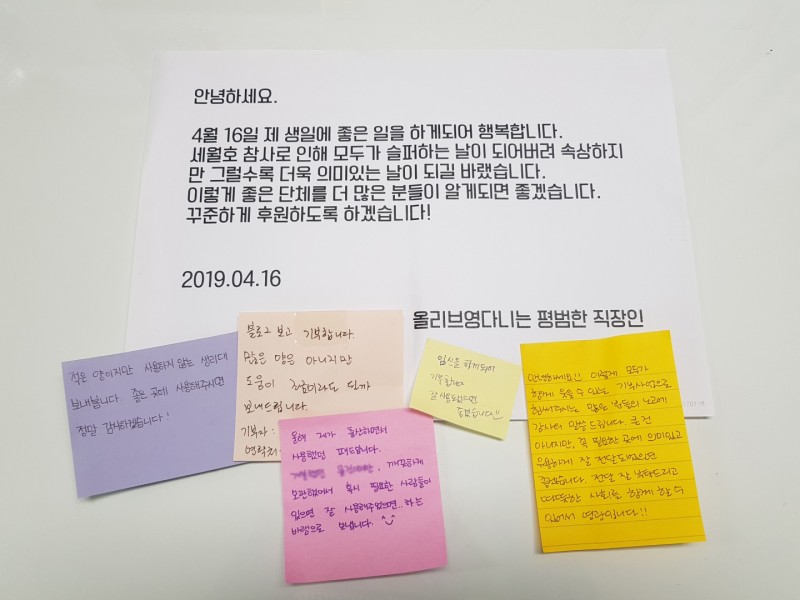 안녕하세요.
4월 16일 제 생일에 좋은 일을 하게되어 행복합니다.
세월호 참사로 인해 모두가 슬퍼하는 날이 되어버려 속상하지
만 그럴수록 더욱 의미있는 날이 되길 바랬습니다.
이렇게 좋은 단체를 더 많은 분들이 알게되면 좋겠습니다.
꾸준하게 후원하도록 하겠습니다!
2019.04.16
올리브영다니는 평범한 직장인
적은 양이지만 사용하지 않는 생리대
보내봅니다. 좋은 곳에 사용해주시면
정말 감사하겠습니다!
블로그 보고 기부합니다.
많은 양은 아니지만
도움이 조금이라도 될까
보내드립니다.
기부자 :
연락처:
올해 제가 출산하면서
사용했던 패드입니다.
깨끗하게
보관했어서 혹시 필요한 사람들이
있으면 잘 사용해주셨으면..하는
바램으로 보냅니다.
임신을 하게되어
기부합니다
잘 사용되었으면
좋겠습니다!!
안녕하세요!! 이렇게 모두가
함께 웃을 수 있는 기부사업으로
힘써주시는 많은 분들의 노고에
감사의 말씀 드립니다. 큰건
아니지만, 꼭 필요한 곳에 의미있고
유용하게 잘 전달되었으면
좋겠습니다. 전달 잘 부탁드리고
따뜻한 사회를 함께 할 수
있어서 영광입니다!!